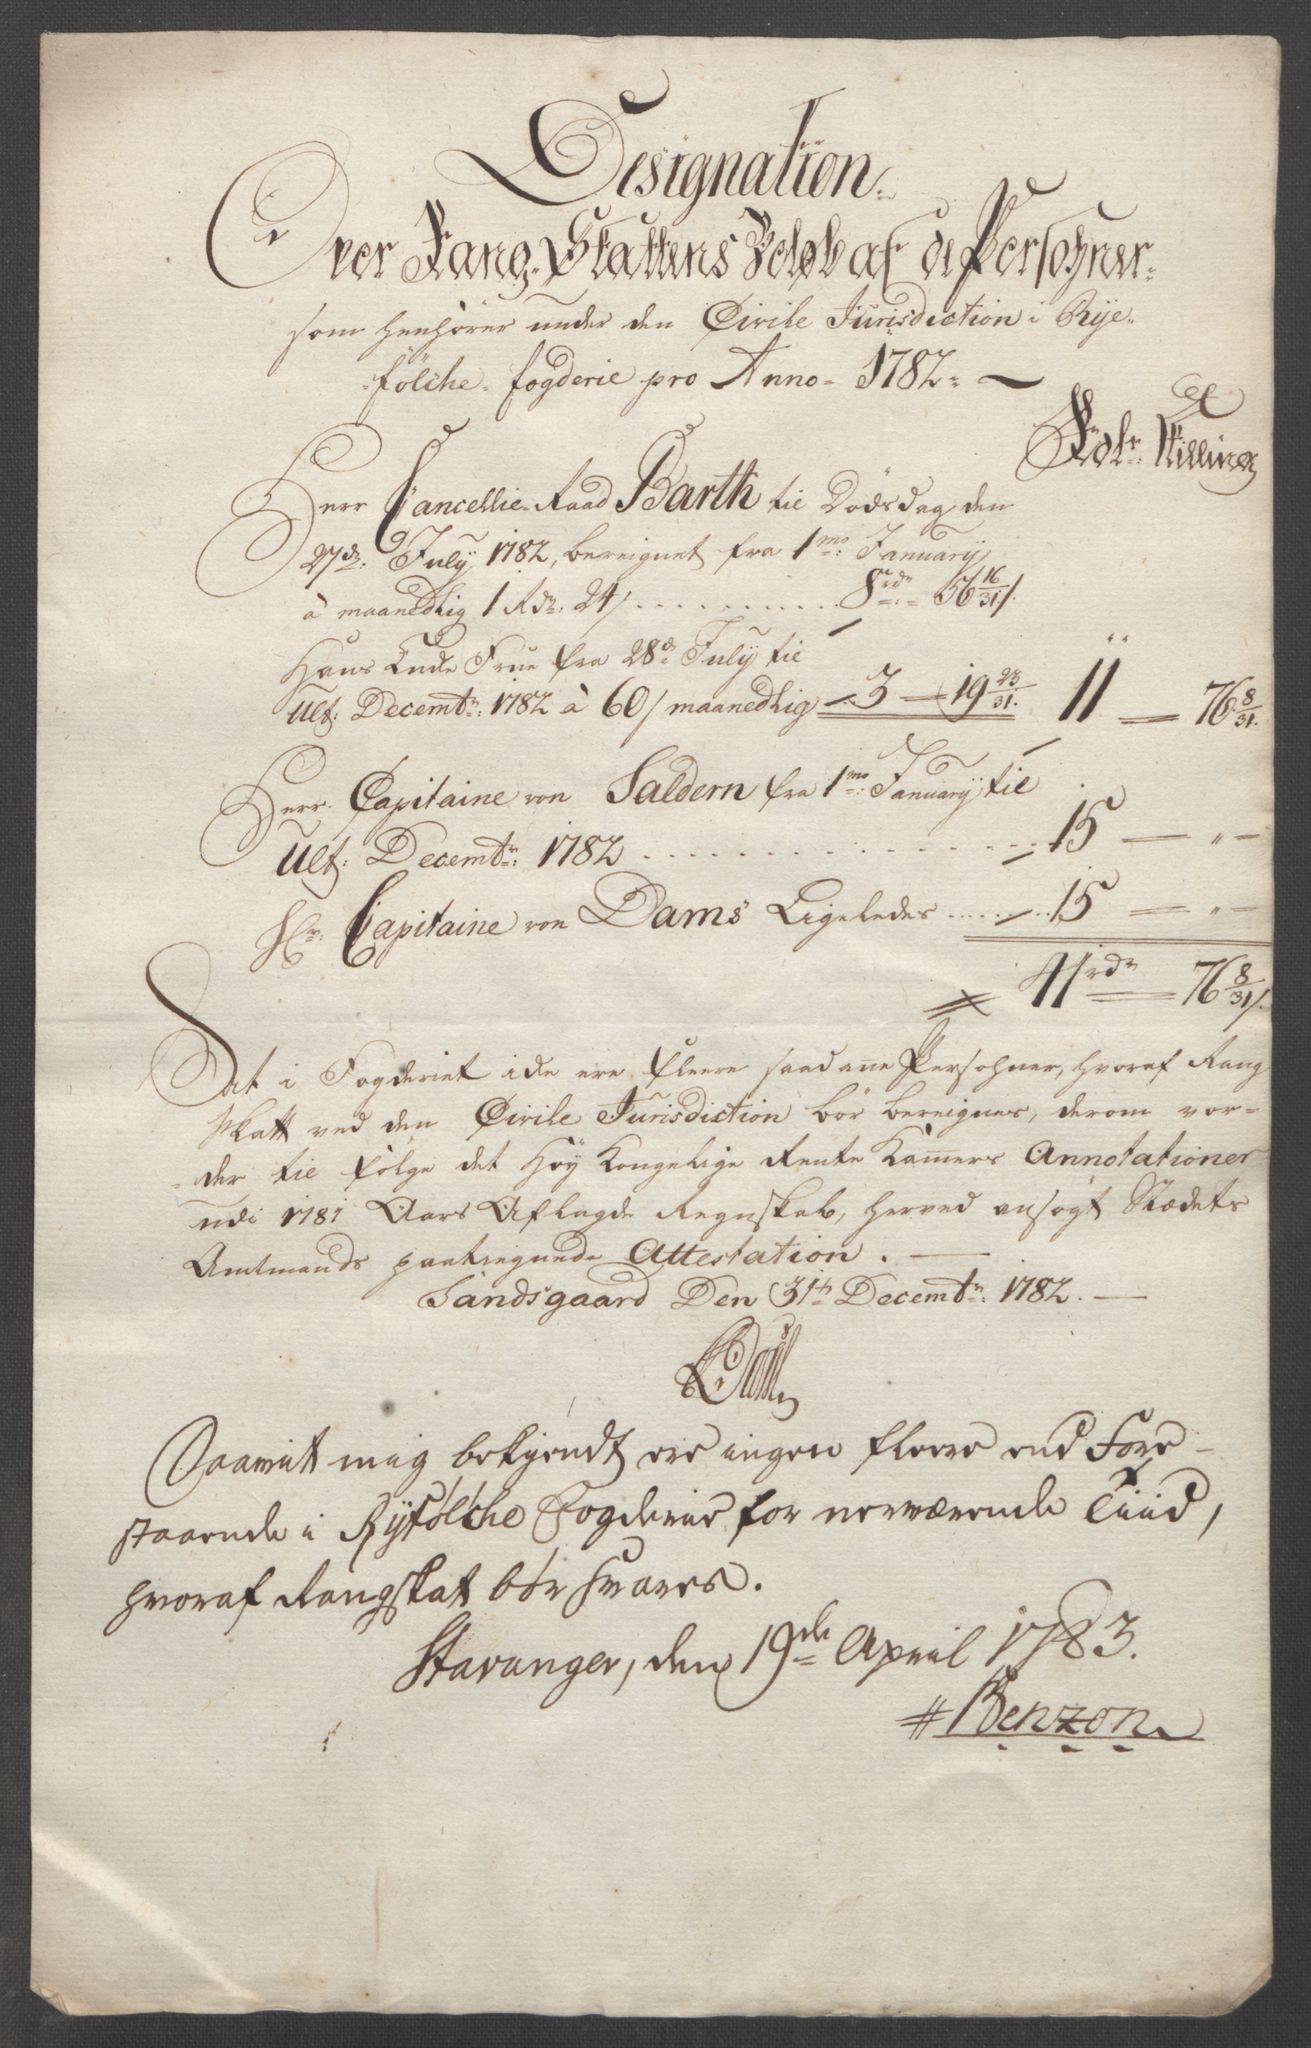 Designation
Over Rang-Skattens Beløb af de Persohner
som henhører under den Civile Jurisdiction i Rye-
fölche fogderie pro Anno 1782
Rdlr. Skilling
Herr Cancellie-Raad Barth til Dödsdag den
27de July 1782, bereignet fra 1mo January
à maanedlig 1 Rdr. 24/ . . . 8 rdr 56 16/31/.
Hans Enke Frue fra 28de July til
Ult. Decembr. 1782 à 60/ maanedlig 3 — 19 23/31. 11 — 76 8/31.
Herr. Capitaine von Saldern fra 1mo January til
Ult. Decembr. 1782 . . . 15 — " —
Hr. Capitaine von Dams Ligeledes . . . 15 — " —
41 rdr — 76 8/31/.
At i Fogderiet icke ere fleere saadanne Persohner, hvoraf Rang
skatt ved den Civile Jurisdiction bör bereignes, derom vor-
der til fölge det Höy Kongelige Rente Kamers Annotationer
udi 1781 Aars Aflagde Regnskab, herved ansögt Stædets
Amtmands paategnende Attestation.
Sandsgaard Den 31te Decembr. 1782.
Saavit mig bekjendt ere ingen fleere end Fore-
staaende i Ryfölche Fogderie for nerværende Tiid,
hvoraf Rangskat bör svares.
Stavanger, den 19de April 1783.
Benzon